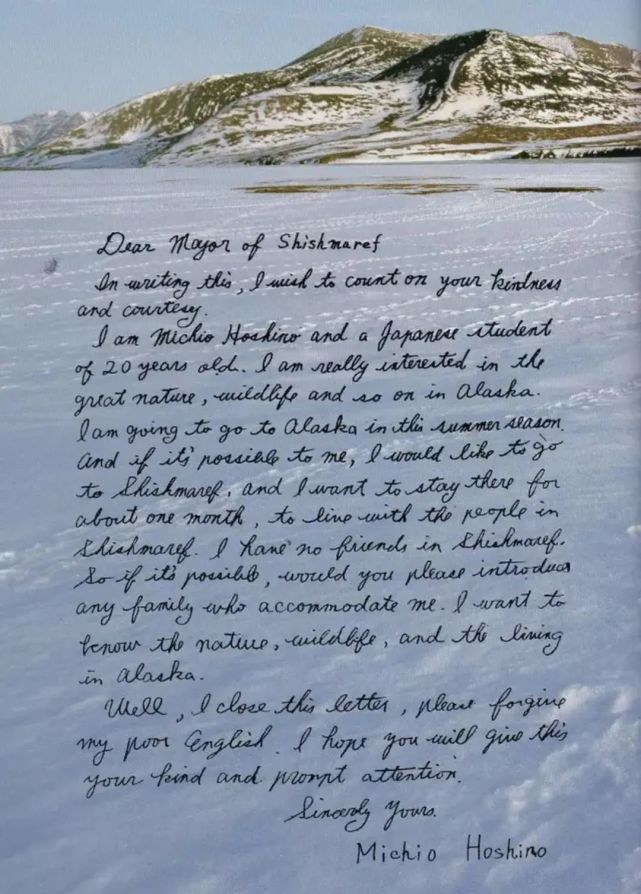 Dear Mayor of Shishmaref
In writing this, I wish to count on your kindness
and courtesy.
I am Michio Hoshino and a Japanese student
of 20 years old. I am really interested in the
great nature, wildlife and so on in Alaska.
I am going to go to Alaska in this summer season.
And if it's possible to me, I would like to go
to Shishmaref, and I want to stay there for
about one month, to live with the people in
Shishmaref. I have no friends in Shishmaref.
So if it's possible, would you please introduce
any family who accommodate me. I want to
know the nature, wildlife, and the living
in Alaska.
Well, I close this letter, please forgive
my poor English. I hope you will give this
your kind and prompt attention.
Sincerely Yours.
Michio Hoshino